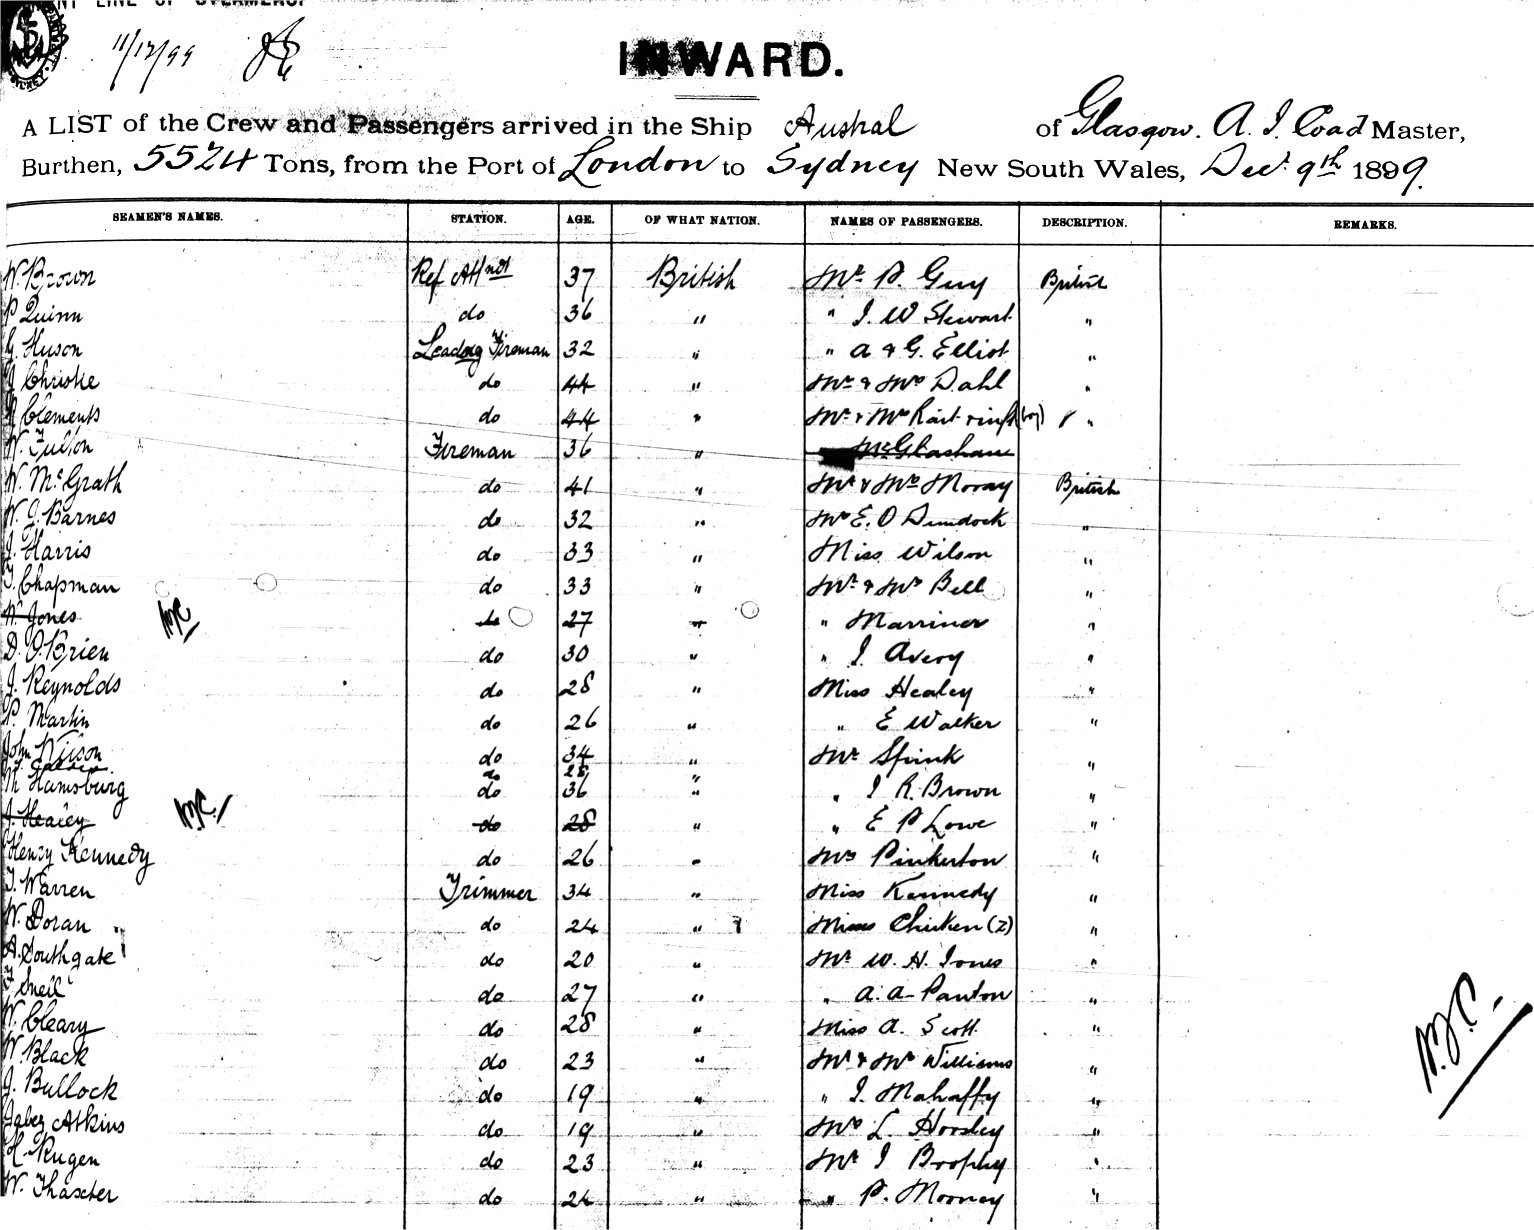 NT LINE OF STEAMERS.
11/12/99
INWARD.
A LIST of the Crew and Passengers arrived in the Ship Austral of Glasgow. A. J. Coad Master,
Burthen, 5524 Tons, from the Port of London to Sydney New South Wales, Dec. 9th 1899.
SEAMEN'S NAMES. STATION. AGE. OF WHAT NATION. NAMES OF PASSENGERS. DESCRIPTION. REMARKS.
W. Brown Ref Attndt 37 British Mr. P. Guy British
P Quinn do 36 " " J. W Stewart "
G. Huson Leading Fireman 32 " " A & G. Elliot "
J Christie do 44 " Mr & Mrs Dahl "
Clements do 44 " Mr & Mrs (boy) "
W. Fulton Fireman 36 " McGlashan
W. McGrath do 41 " Mr & Mrs Moray British
W. J. Barnes do 32 " Mrs E. O Dundock "
J. Harris do 33 " Miss Wilson "
T. Chapman do 33 " Mr & Mrs Bell "
W. Jones do 27 " " Marriner "
D. O'Brien do 30 " " J. Avery "
J. Reynolds do 28 " Miss Healey "
P. Martin do 26 " " E Walker "
John Wilson do 34 " Mr Spink "
do 28 "
M Hamsburg do 36 " " J R. Brown "
J. Healey do 28 " " E P Lowe "
Henry Kennedy do 26 " Mrs Pinkerton "
J. Warren Trimmer 34 " Miss Kennedy "
W. Doran do 24 " Misses Chicken (2) "
A. Southgate do 20 " Mr W. H. Jones "
F Sneil do 27 " " A. A. Panton "
W. Cleary do 28 " Miss A. Scott "
W. Black do 23 " Mr & Mrs Williams "
J. Bullock do 19 " " J. Mahaffy "
Jabez Atkins do 19 " Mrs L. Horsley "
H. Rugen do 23 " Mr J Brophy "
W. Thaxter do 24 " " P. Mooney "